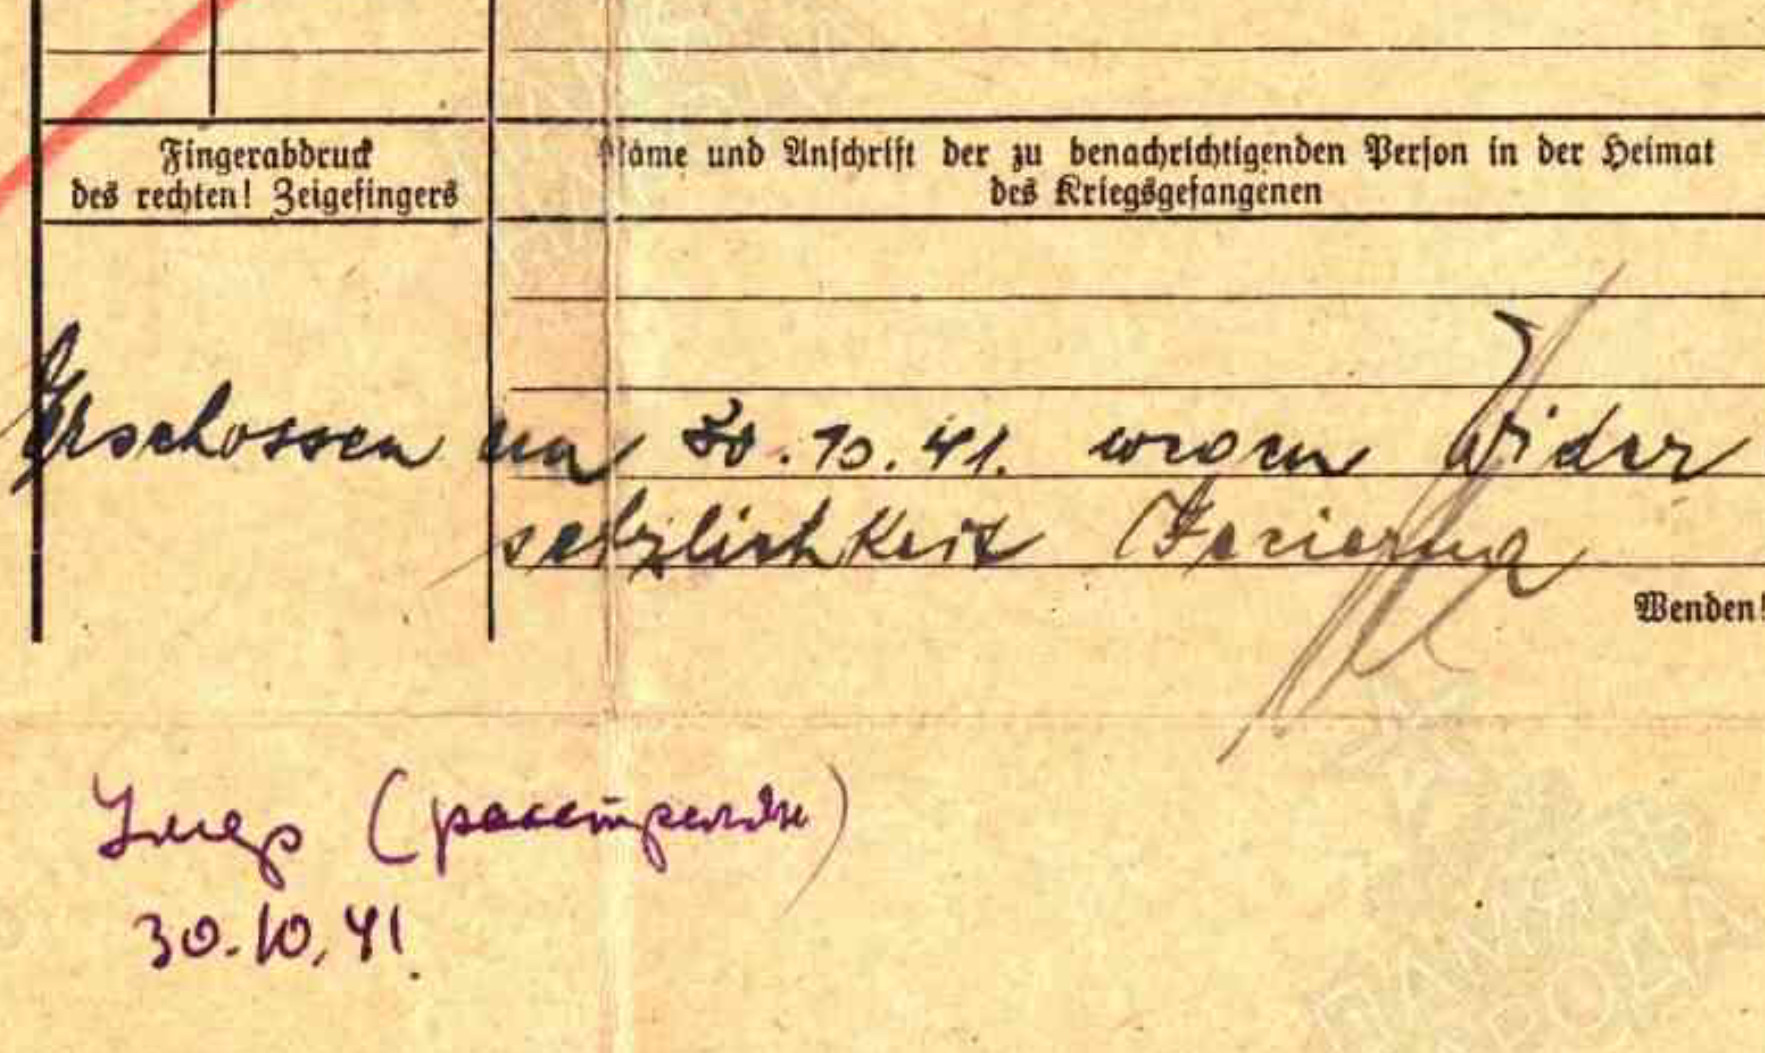 Fingerabdruck
des rechten! Zeigefingers
Name und Anschrift der zu benachrichtigenden Person in der Heimat
des Kriegsgefangenen
Erschossen am 30.10.41. wegen Wider
setzlichkeit
Wenden!
Умер (расстрелян)
30.10.41.
ПАМЯТЬ
НАРОДА